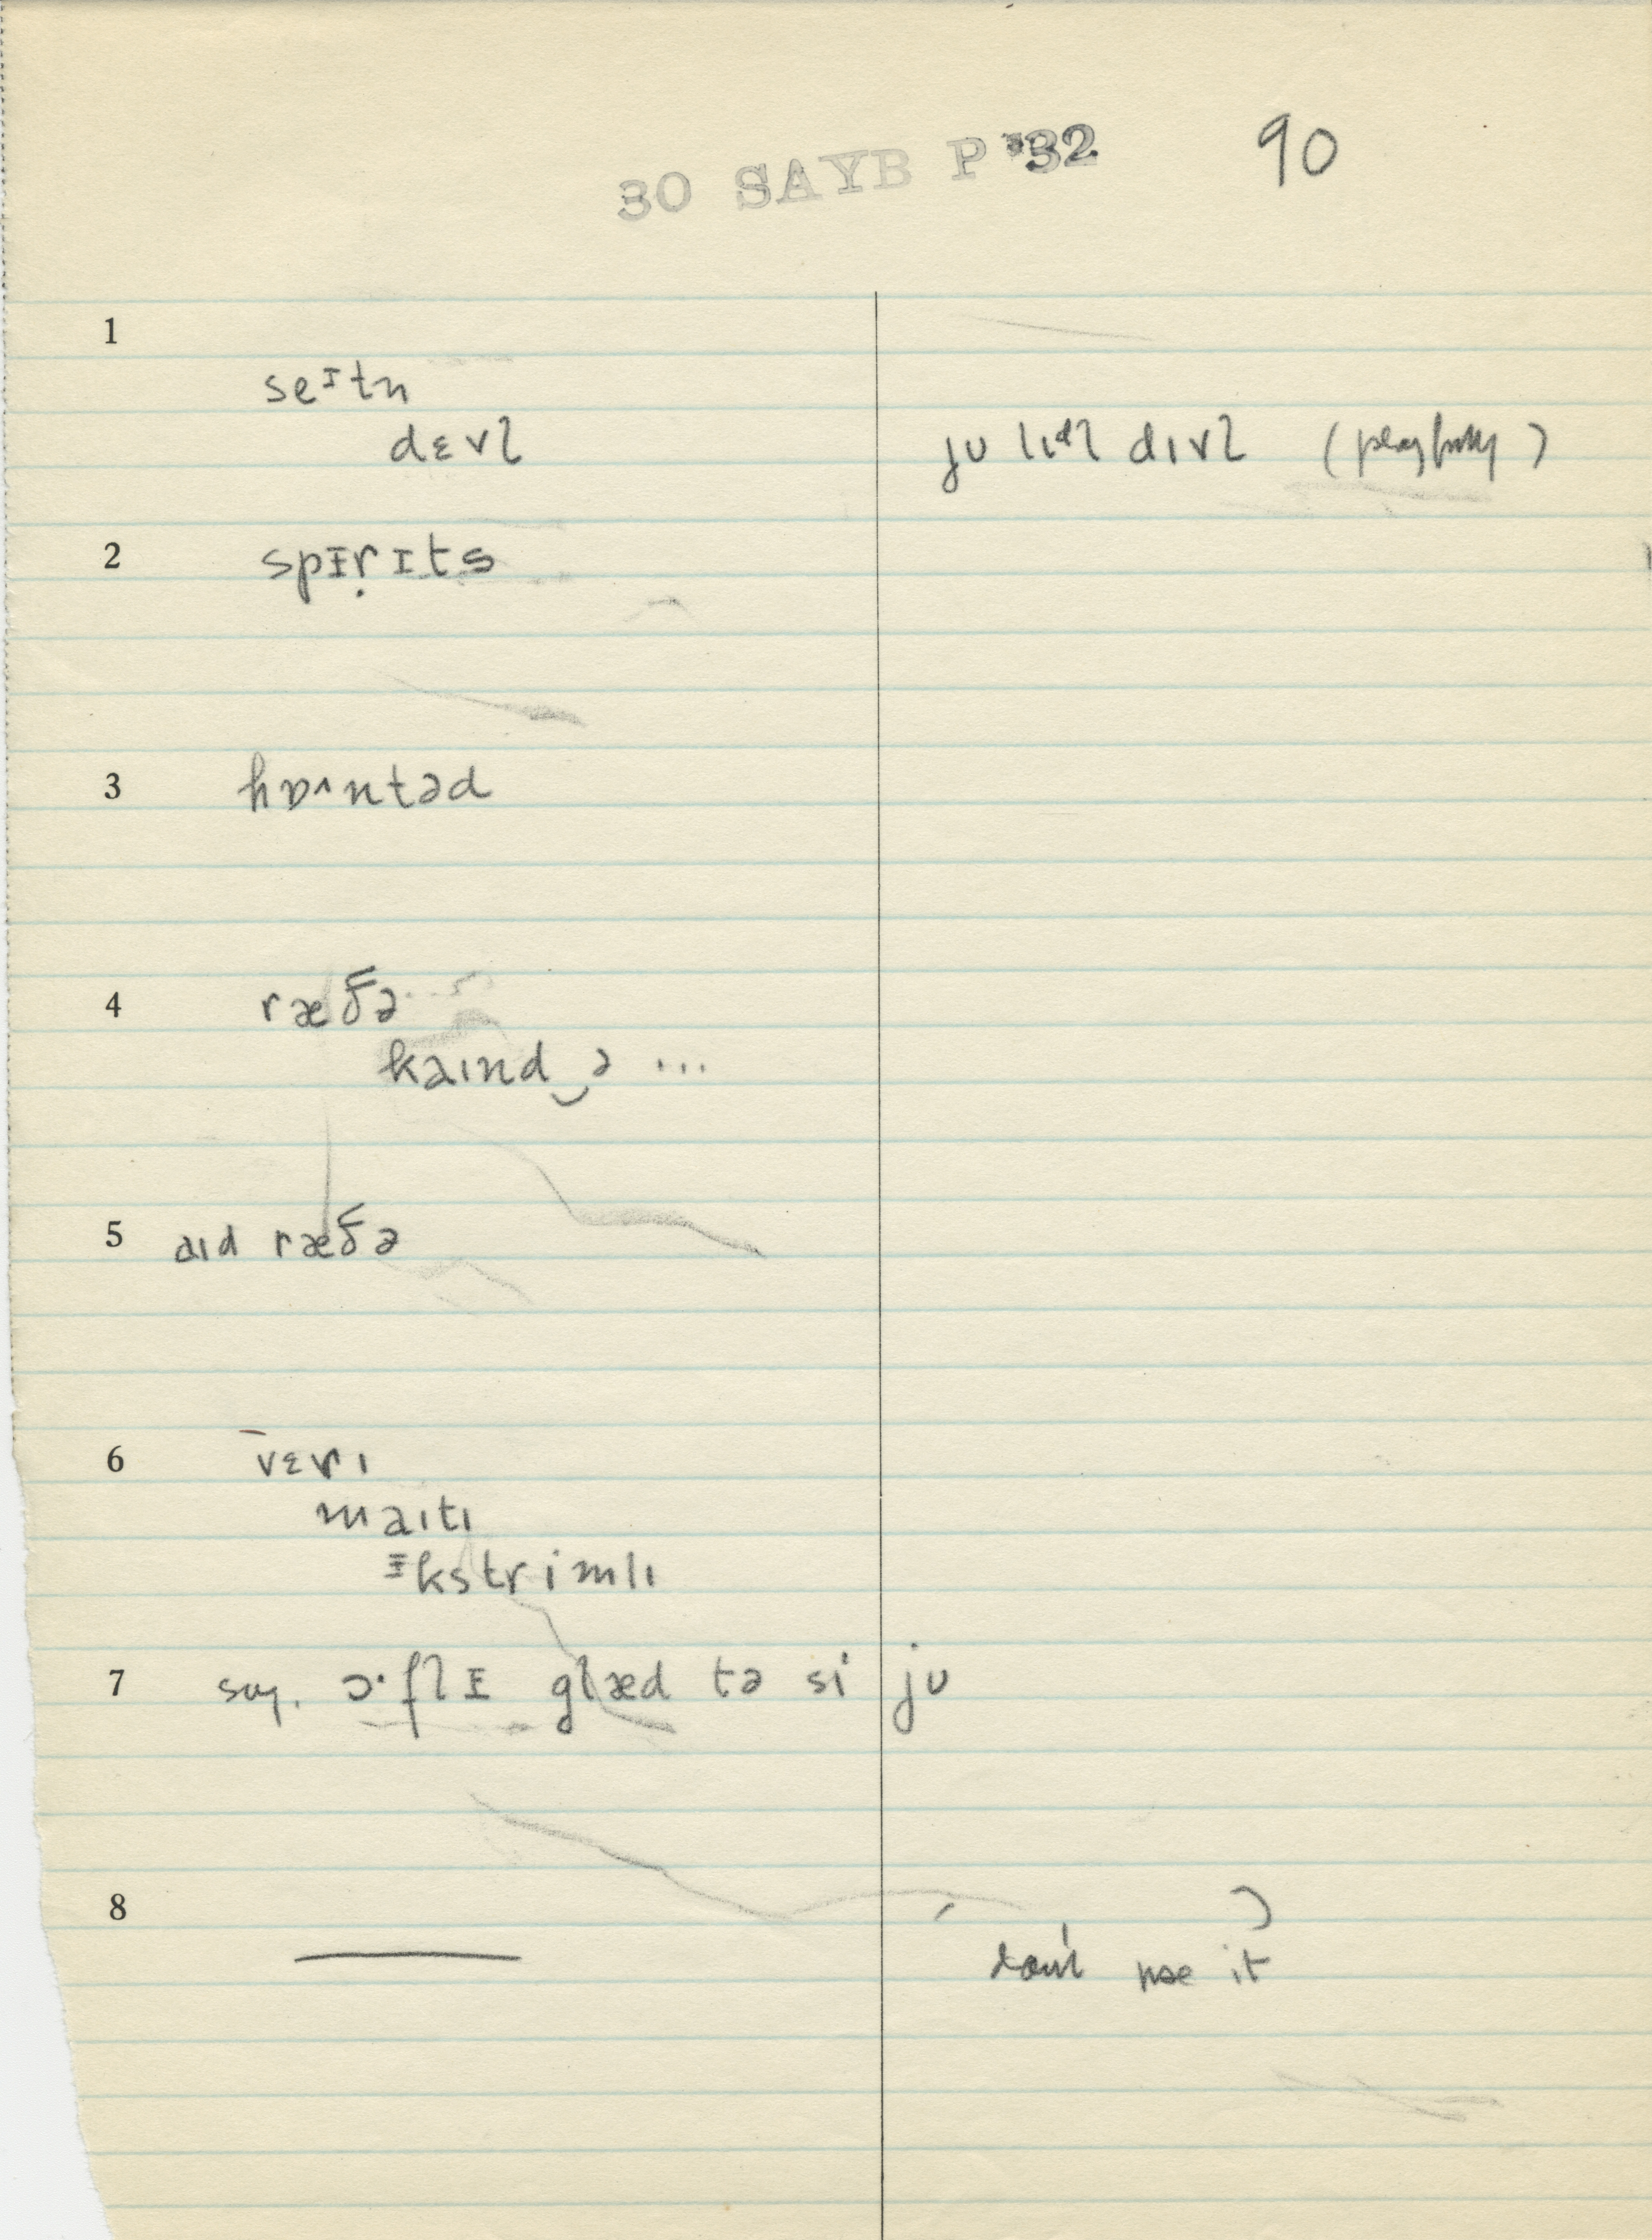 30 SAYB P '32 90
1
seᴵtn
dɛvl ju lɪdl dɪvl (playfully)
2 spɪ̵ṛɪts
3 hɒ^ntəd
4 ræðə
kaɪnd‿ə ...
5 aɪd ræðə
6 vɛrɪ
maɪtɪ
ɪ̵kstrimlɪ
7 say. ɔ·flɪ̵ glæd tə si ju
8 ( )
don't use it